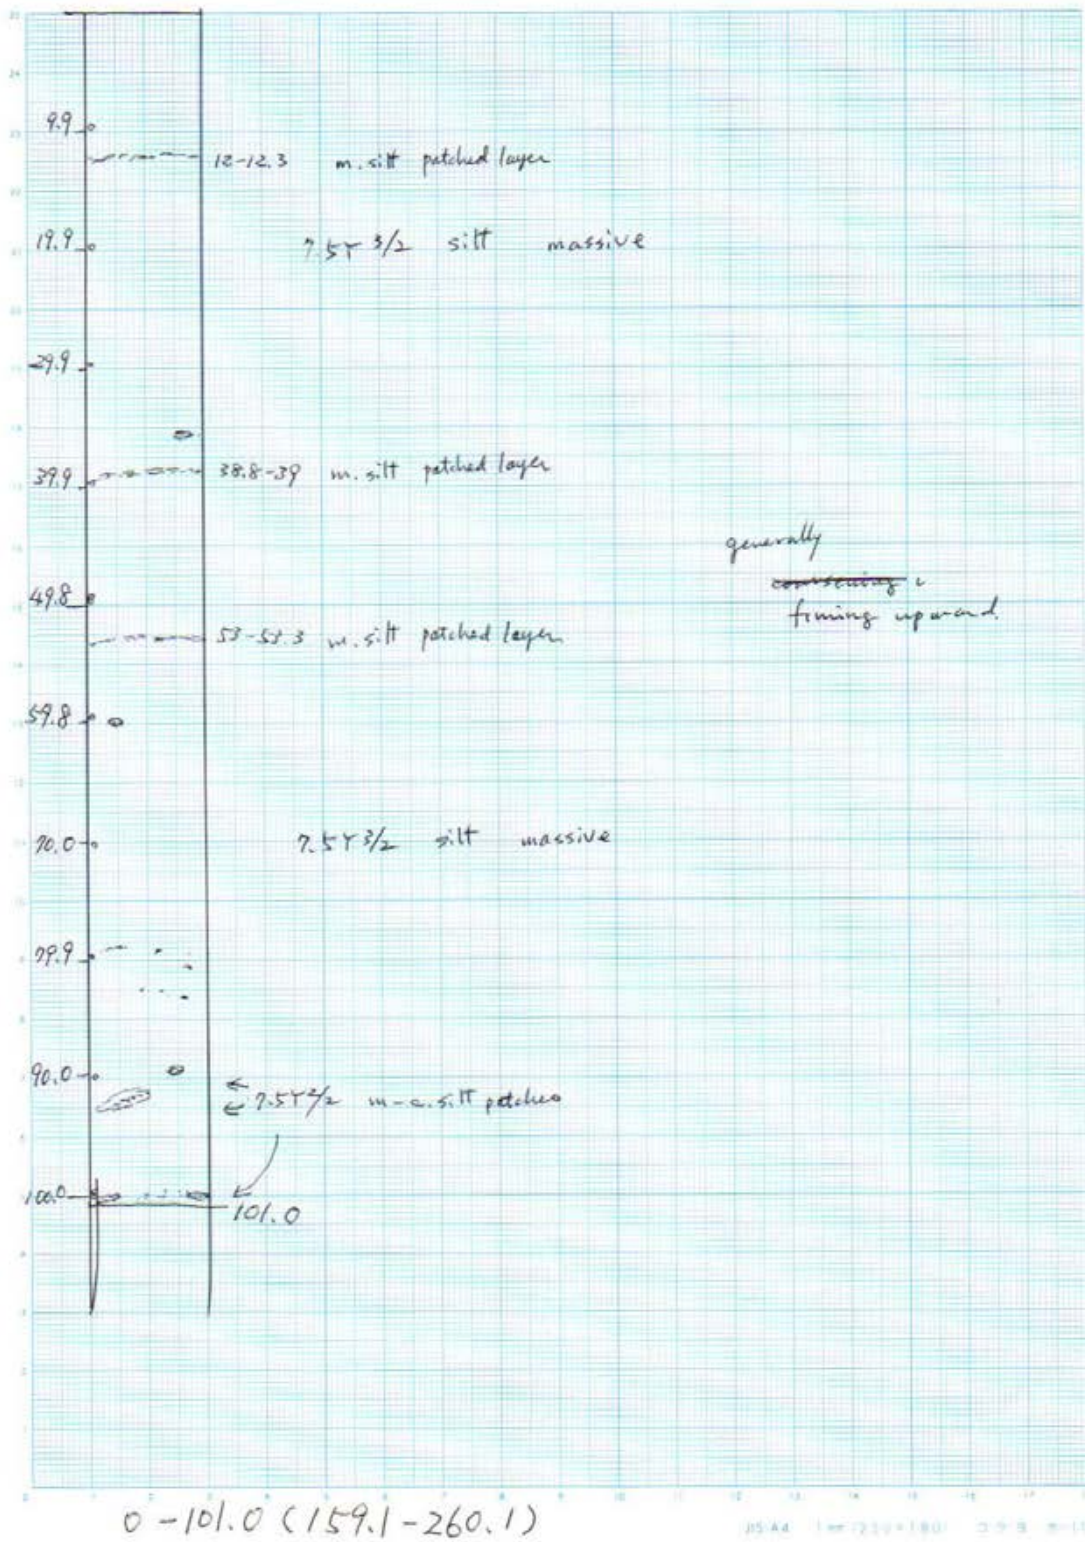 9.9
12-12.3 m. silt patched layer
19.9 7.5Y 3/2 silt massive
29.9
39.9 38.8-39 m. silt patched layer
generally
coarsening
49.8
fining upward
53-53.3 m. silt patched layer
59.8
70.0 7.5Y 3/2 silt massive
79.9
90.0
7.5Y 2/2 m-c. silt patches
100.0
101.0
0-101.0 (159.1-260.1)
JIS A4